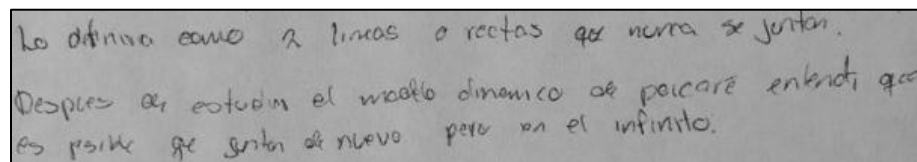 Lo difiniria como 2 lineas o rectas que nunca se juntan.
Despues de estudiar el modelo dinamico de poicaré entendi que
es posible que juntan de nuevo pero en el infinito.